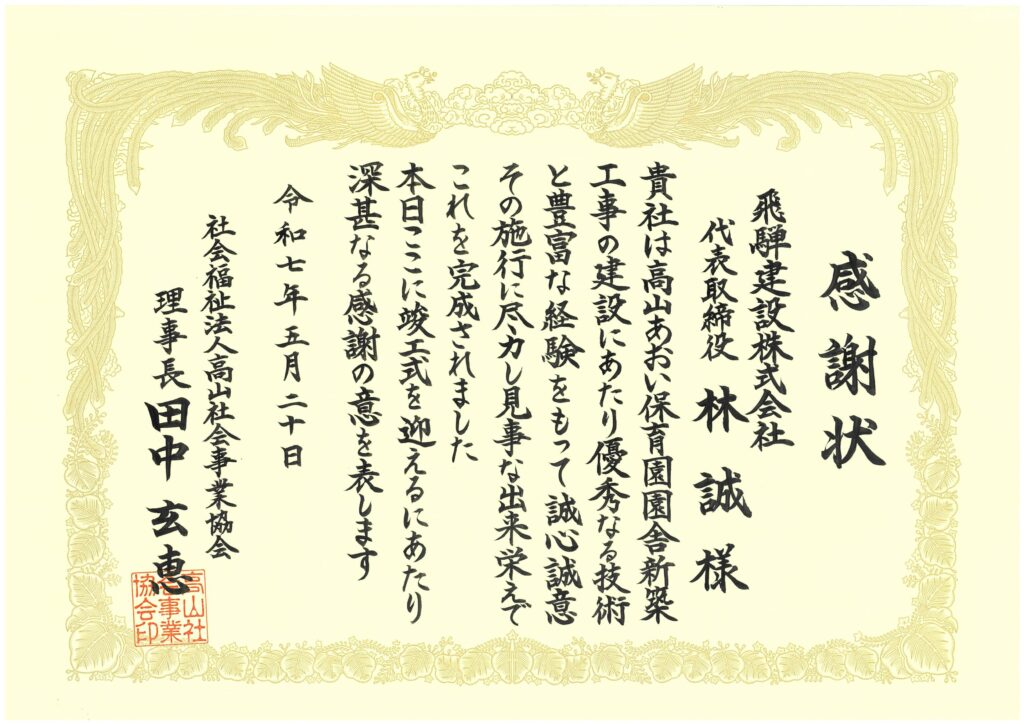 感謝状
飛騨建設株式会社
代表取締役 林誠様
貴社は高山あおい保育園園舎新築
工事の建設にあたり優秀なる技術
と豊富な経験をもって誠心誠意
その施行に尽力し見事な出来栄えで
これを完成されました
本日ここに竣工式を迎えるにあたり
深甚なる感謝の意を表します
令和七年五月二十日
社会福祉法人高山社会事業協会
理事長 田中玄恵
高山社
会事業
協会印